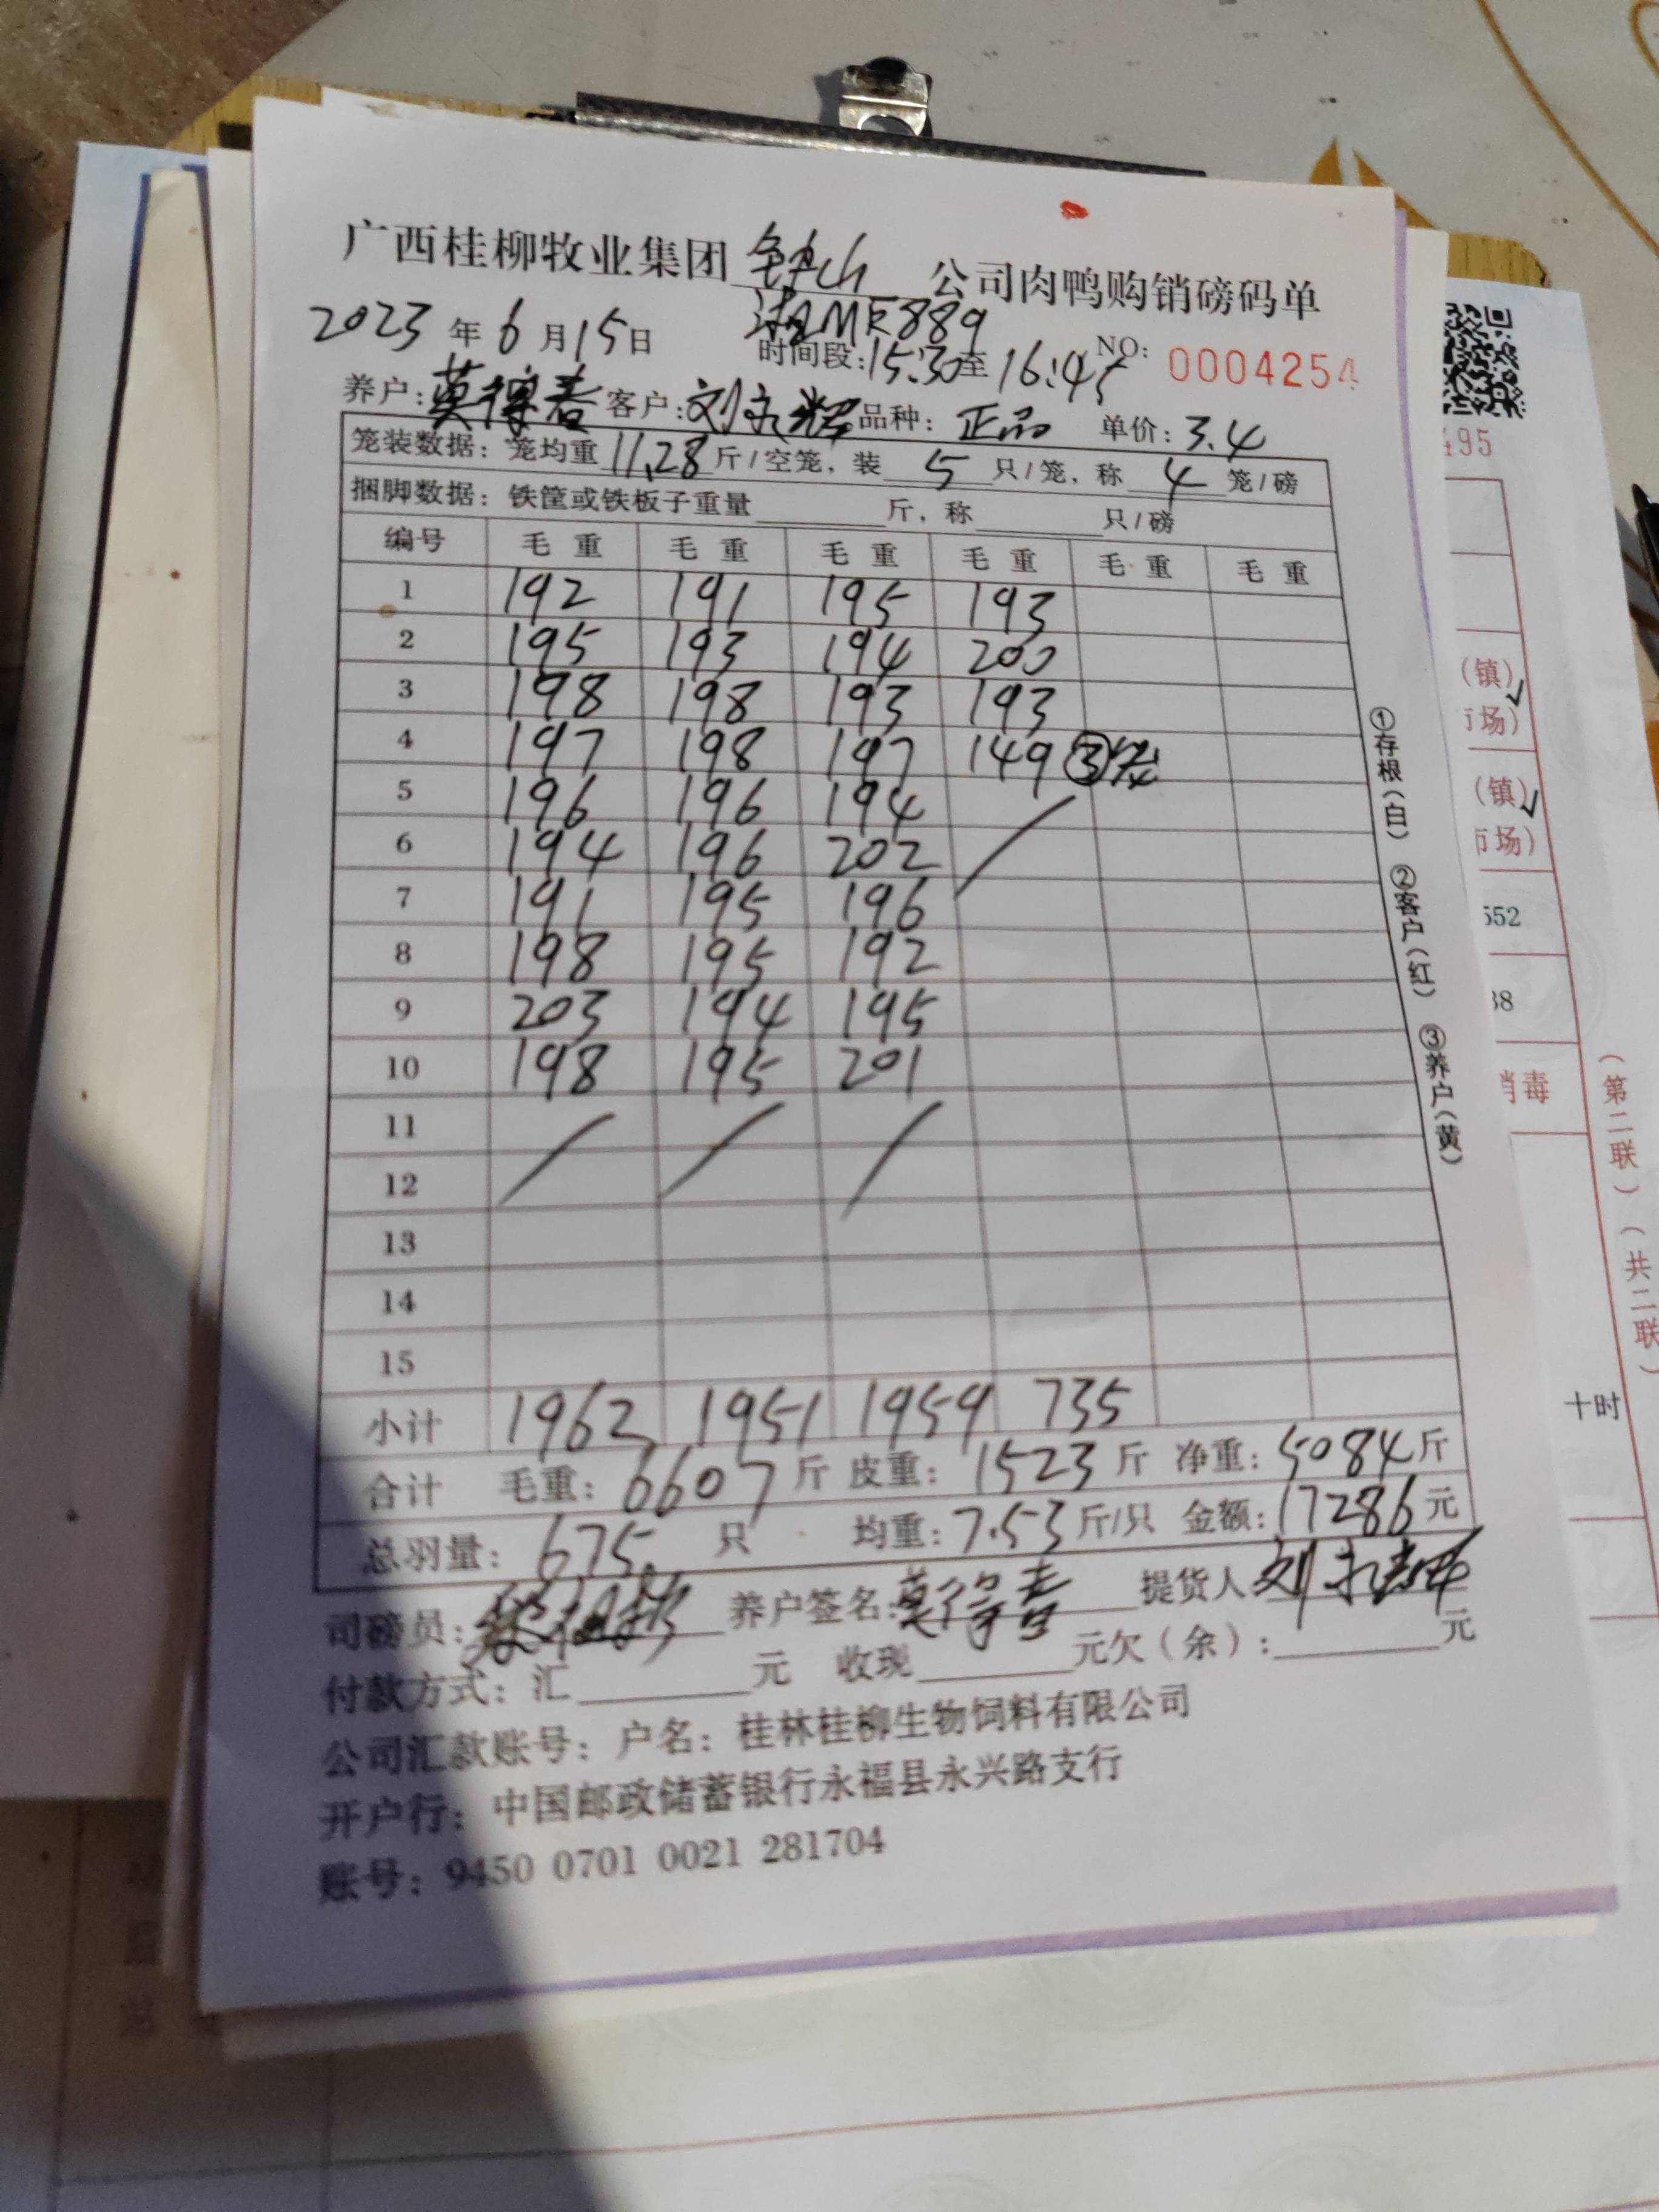 广西桂柳牧业集团 钟山 公司肉鸭购销磅码单
湘ME889
2023 年 6 月 15 日 时间段:15:30至16:45 NO: 0004254
养户: 莫得春 客户: 刘文辉 品种: 正品 单价: 3.4
笼装数据: 笼均重 11.28 斤/空笼, 装 5 只/笼, 称 4 笼/磅
捆脚数据: 铁筐或铁板子重量 斤, 称 只/磅
编号 毛重 毛重 毛重 毛重 毛重 毛重
1 192 191 195 193
2 195 193 194 200
3 198 198 193 193
4 197 198 197 149 ③笼
5 196 196 194
6 194 196 202
7 191 195 196
8 198 195 192
9 203 194 195
10 198 195 201
11
12
13
14
15
小计 1962 1951 1959 735
合计 毛重: 6607 斤 皮重: 1523 斤 净重: 5084 斤
总羽量: 675 只 均重: 7.53 斤/只 金额: 17286 元
司磅员: 养户签名: 莫得春 提货人 刘
付款方式: 汇 元 收现 元欠(余): 元
公司汇款账号: 户名: 桂林桂柳生物饲料有限公司
开户行: 中国邮政储蓄银行永福县永兴路支行
账号: 9450 0701 0021 281704
①存根(白) ②客户(红) ③养户(黄)
495
(镇)
市场)
(镇)
市场)
552
38
消毒
十时
(第二联)(共二联)